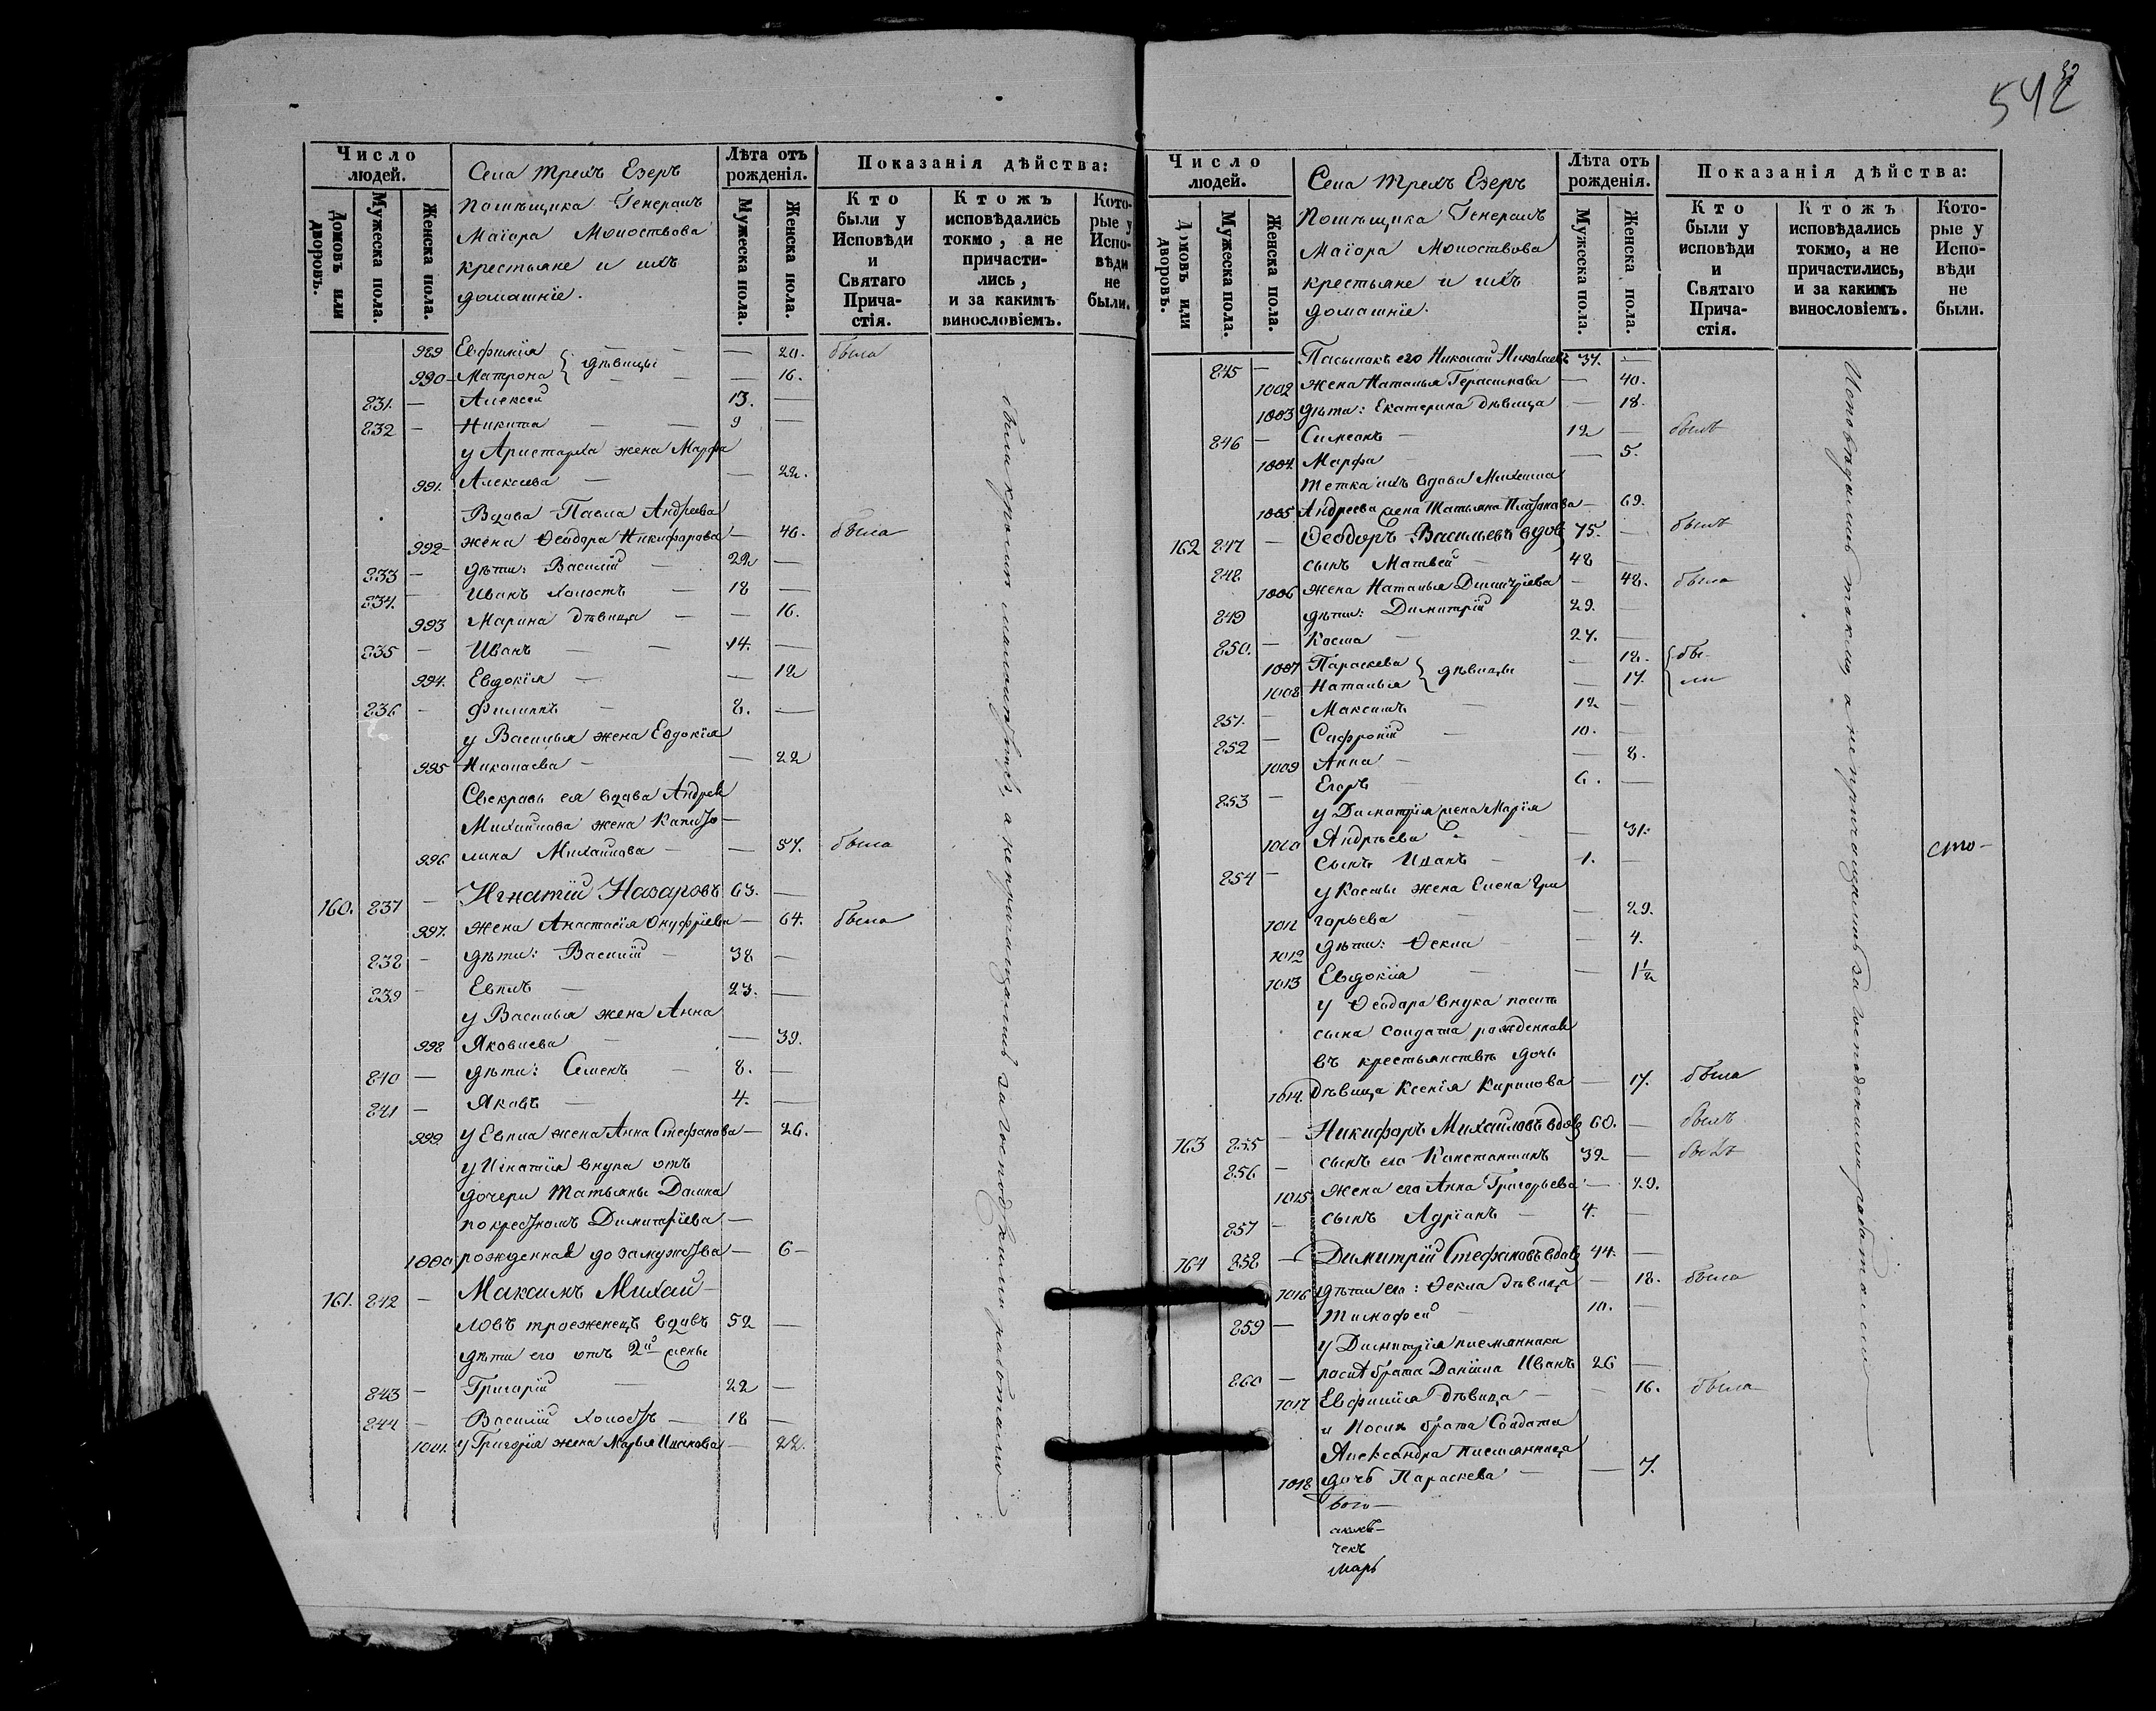 Число людей.
Домовъ или дворовъ.
Мужеска пола.
Женска пола.
Села Трехъ Езеръ
помѣщика Генералъ
Маіора Молоствова
крестьяне и ихъ
домашніе.
Лѣта отъ рожденія.
Мужеска пола.
Женска пола.
Показанія дѣйства:
Кто были у Исповѣди и Святаго Прича- стія.
Ктожъ исповѣдались токмо, а не причасти- лись, и за какимъ винословіемъ.
Кото- рые у Испо- вѣди не были.
989 Евфимія — 20. была
990 Матрона } дѣвицы — 16.
831. — Алексей 13. —
832 — Никита — 9 —
у Аристарха жена Марфа
991. Алексѣева — — 22.
Вдова Павла Андреева
992 жена Ѳеодора Никифорова — 40. была
833 — дѣти: Василій — 22 —
834. — Иванъ холостъ — 18 —
993 Марина дѣвица — — 16.
835 — Иванъ — 14. —
994. Евдокія — — 12
836 — Филиппъ — 8. —
у Василья жена Евдокія
995 Николаева — — 22
Свекровь ея вдова Андрея
Михайлова жена Капито-
996 лина Михайлова — — 57. была
160. 837 — Игнатій Назаровъ 63. —
997. жена Анастасія Онуфріева — 64. была
838 — дѣти: Василій — 38 —
839 — Евплъ — 23. —
у Василья жена Анна
998 Яковлева — — 39.
840 — дѣти: Семенъ — 8. —
841 — Яковъ — 4. —
999 у Евпла жена Анна Стефанова — 26.
у Игнатія внука отъ
дочери Татьяны Домна
по крестномъ Димитріева —
1000 рожденная до замужства — 6 —
161. 842 — Максимъ Михай-
ловъ троеженецъ вдовъ 52 —
дѣти его отъ 2й жены
843 — Григорій — 22 —
844 — Василій холостъ — 18 —
1001. у Григорія жена Марья Иванова — 22.
были кромѣ малолѣтнихъ, а не причащались за господскими работами
542
Число людей.
Домовъ или дворовъ.
Мужеска пола.
Женска пола.
Села Трехъ Езеръ
помѣщика Генералъ
Маіора Молоствова
крестьяне и ихъ
домашніе.
Лѣта отъ рожденія.
Мужеска пола.
Женска пола.
Показанія дѣйства:
Кто были у исповѣди и Святаго Прича- стія.
Ктожъ исповѣдались токмо, а не причастились, и за какимъ винословіемъ.
Кото- рые у Испо- вѣди не были.
845 — Пасынокъ его Николай Николаевъ 37. —
1002 жена Наталья Герасимова — 40.
1003 дѣти: Екатерина дѣвица — 18.
846 — Симеонъ — 12 — былъ
1004. Марфа — 5.
Тетка ихъ вдова Михаила
1005 Андреева жена Татьяна Платонова — 69.
162 847 — Ѳеодоръ Васильевъ вдов 75. — былъ
848 сынъ Матвей — 48 —
1006 жена Наталья Димитріева — 48. была
849 дѣти: Димитрій 29. —
850. — Косма — 27. —
1007 Параскева — 18. бы-
1008 Наталья } дѣвицы — 17. ли
851. — Максимъ — 12 —
852 — Сафроній — 10. —
1009 Анна — — 8.
853 — Егоръ — 6. —
у Димитрія жена Марія
1010 Андрѣева — — 31.
854 — сынъ Иванъ — 1. —
у Космы жена Елена Гри
1011 горьева — — 29.
1012 дѣти: Ѳекла — — 4.
1013 Евдокія — — 1½
у Ѳеодора внука послѣ
сына солдата рожденная
въ крестьянствѣ дочь
1014. дѣвица Ксенія Кирилова — 17. была
163 855 — Никифоръ Михайловъ вдов 60. — былъ
856 — сынъ его Константинъ 32 — былъ
1015 жена его Анна Григорьева — 29.
857 — сынъ Адріанъ — 4. —
164 858 — Димитрій Стефановъ вдов 44. —
1016 дѣти его: Ѳекла дѣвица — 18. была
859 — Тимофей — 10. —
у Димитрія племянники
860 — послѣ брата Даніила Иванъ 26 —
1017 Евфимія дѣвица — — 16. была
и послѣ брата Солдата
Александра племянница
1018 дочь Параскева — — 7.
Исповѣдались токмо, а не причащались за господскими работами
сто-